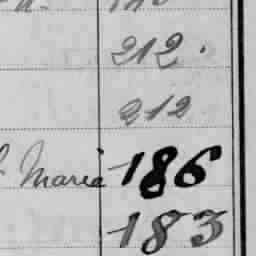 212.
212
Marie 186
183